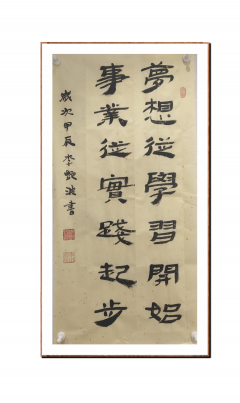 夢想從學習開始
事業從實踐起步
歲次甲辰李乾波書